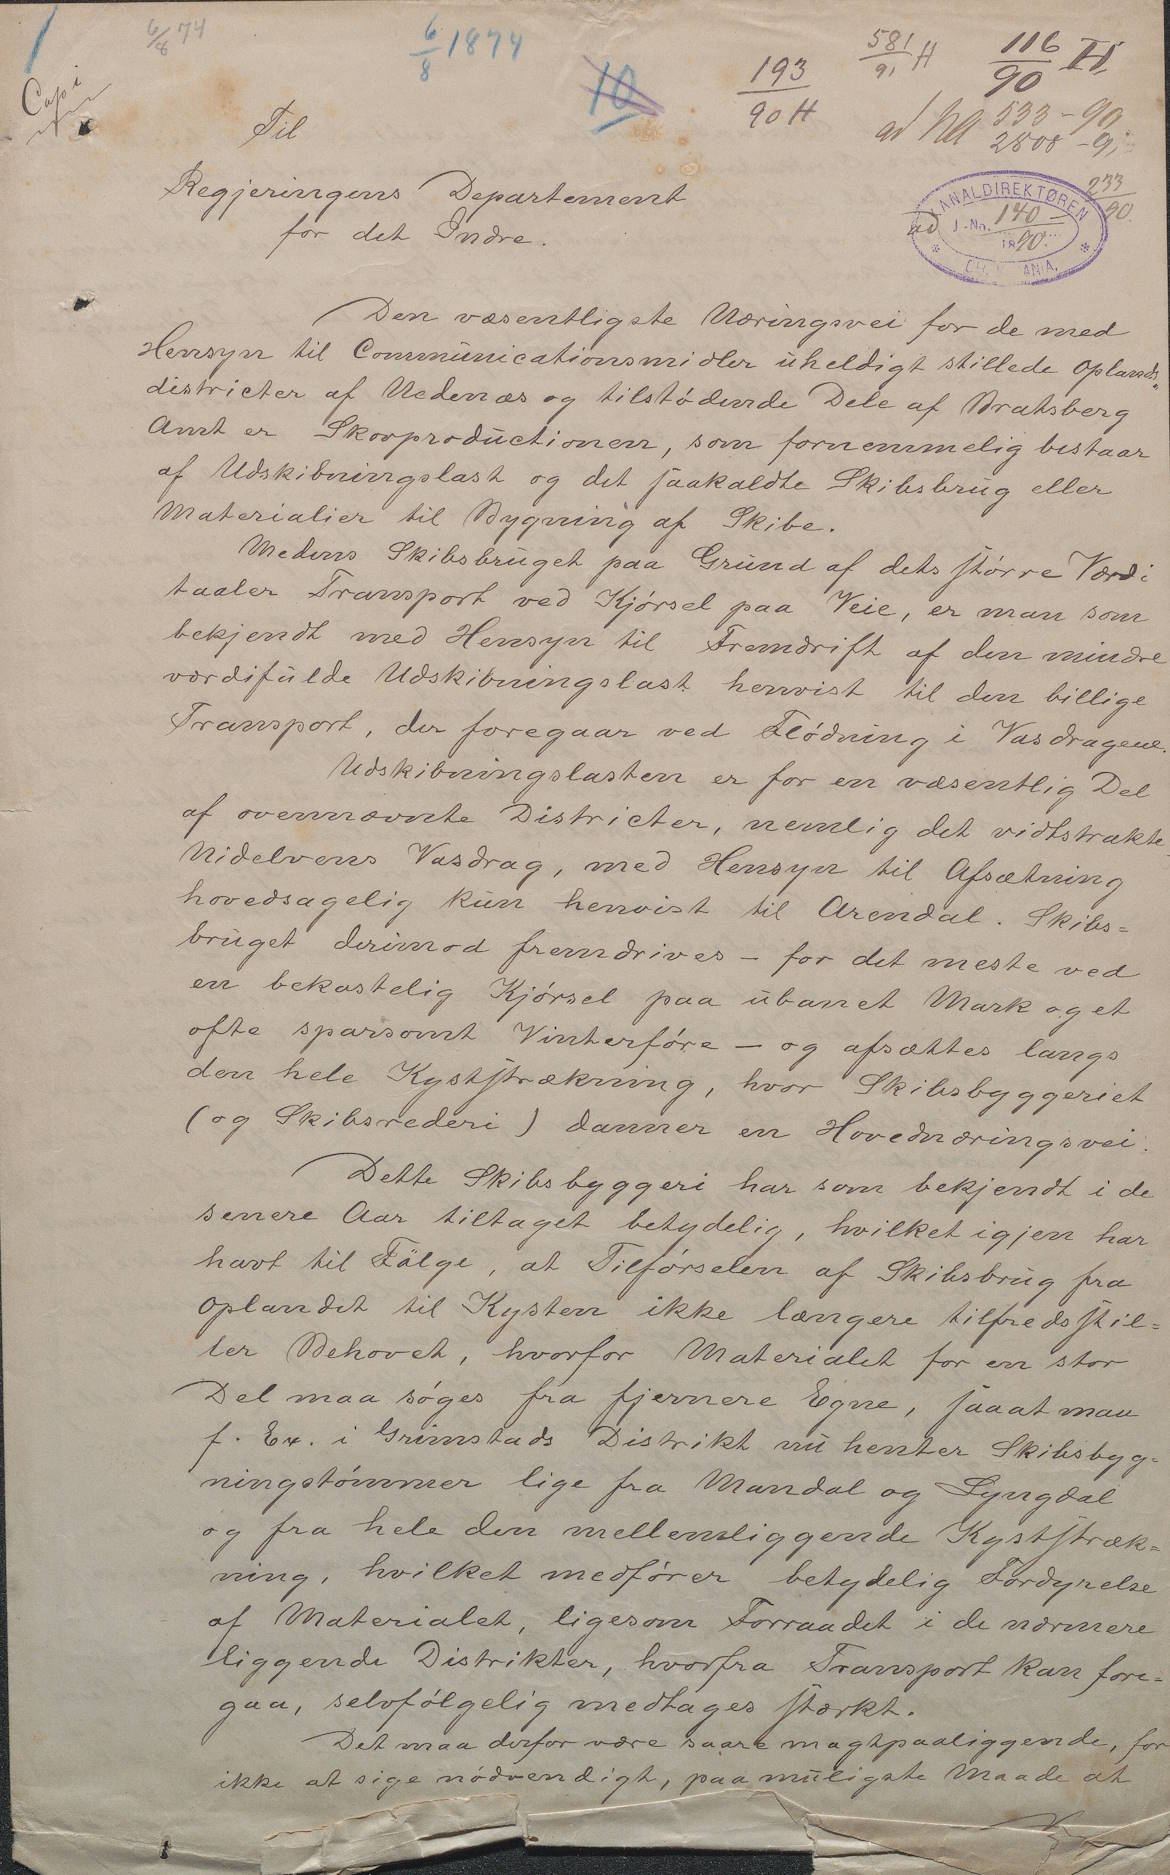 6/8 74
6/8 1874
10
193/90 H
581/91 H
116/90 H.
Copi
ad No 533-90
2808-9
Til
Regjeringens Departement
for det Indre.
233/90.
KANALDIREKTØREN
ad J.-No. 140 -
1890.
ANIA.
Den væsentligste Næringsvei for de med
Hensyn til Communicationsmidler uheldigt stillede Oplands
districter af Nedenæs og tilstödende Dele af Bratsberg
Amt er Skovproductionen, som fornemmelig bestaar
af Udskibningslast og det saakaldte Skibsbrug eller
Materialier til Bygning af Skibe.
Medens Skibsbruget paa Grund af dets större Værdi
taaler Transport ved Kjörsel paa Veie, er man som
bekjendt med Hensyn til Fremdrift af den mindre
værdifulde Udskibningslast henvist til den billige
Transport, der foregaar ved Flödning i Vasdragene.
Udskibningslasten er for en væsentlig Del
af ovennævnte Districter, nemlig det vidtstrakte
Nidelvens Vasdrag, med Hensyn til Afsætning
hovedsagelig kun henvist til Arendal. Skibs=
bruget derimod fremdrives - for det meste ved
en bekostelig Kjörsel paa ubanet Mark og et
ofte sparsomt Vinterföre - og afsættes langs
den hele Kyststrækning, hvor Skibsbyggeriet
(og Skibsrederi) danner en Hovednæringsvei.
Dette Skibsbyggeri har som bekjendt i de
senere Aar tiltaget betydelig, hvilket igjen har
havt til Fölge, at Tilförselen af Skibsbrug fra
Oplandet til Kysten ikke længere tilfredsstil=
ler Behovet, hvorfor Materialet for en stor
Del maa söges fra fjernere Egne, saaat man
f. Ex. i Grimstads Distrikt nu henter Skibsbyg=
ningstömmer lige fra Mandal og Lyngdal
og fra hele den mellemliggende Kyststræk=
ning, hvilket medförer betydelig Fordyrelse
af Materialet, ligesom Forraadet i de nærmere
liggende Distrikter, hvorfra Transport kan fore=
gaa, selvfölgelig medtages stærkt.
Det maa derfor være saare magtpaaliggende, for
ikke at sige nödvendigt, paa muligste Maade at